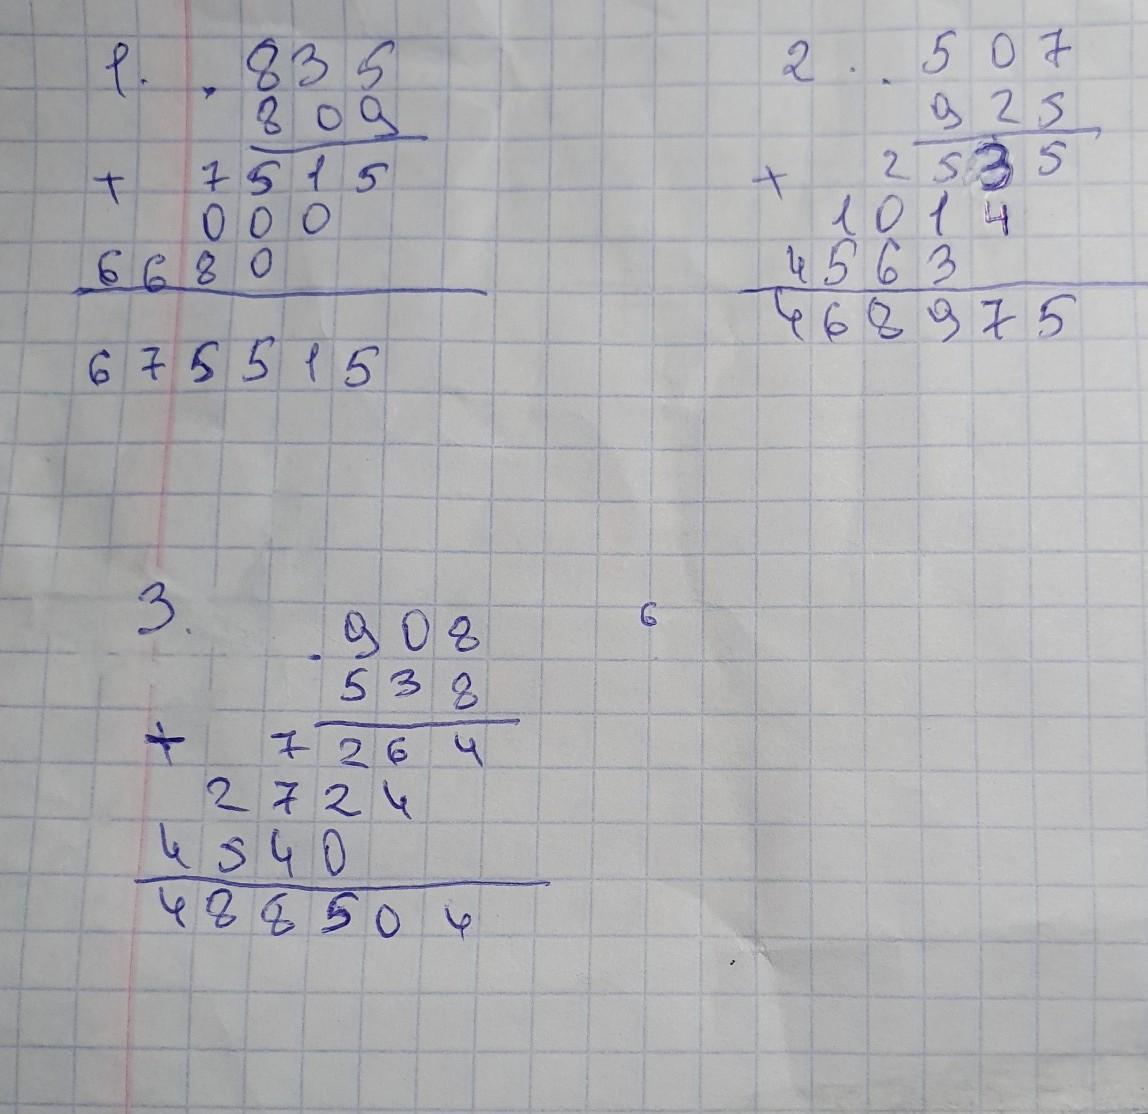 1. . 8 3 5
8 0 9
+ 7 5 1 5
0 0 0
6 6 8 0
6 7 5 5 1 5
2 . . 5 0 7
9 2 5
+ 2 5 3 5
1 0 1 4
4 5 6 3
4 6 8 9 7 5
3. . 9 0 8
5 3 8
+ 7 2 6 4
2 7 2 4
4 5 4 0
4 8 8 5 0 4
6